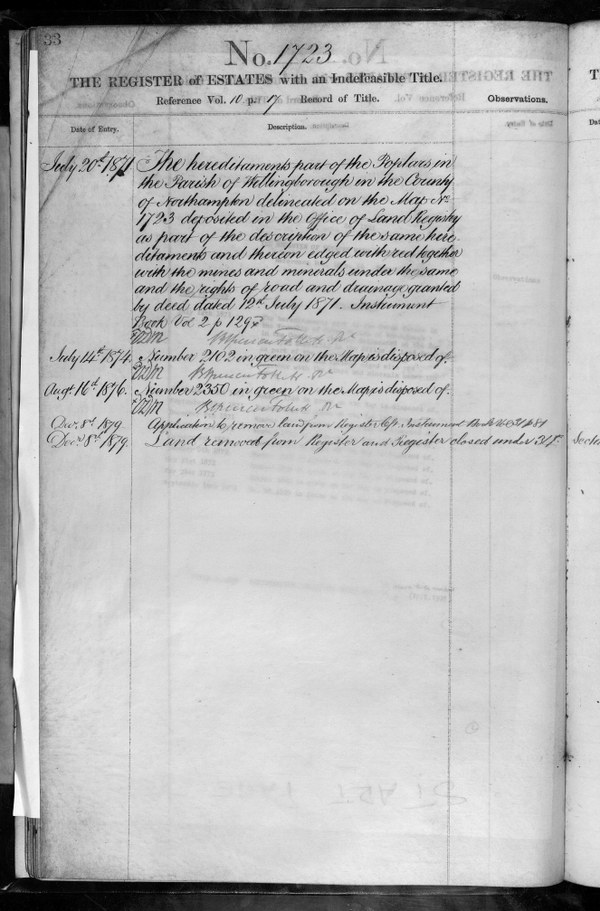 33
No. 1723
THE REGISTER of ESTATES with an Indefeasible Title.
Reference Vol. 10 p. 17 Record of Title. Observations.
Date of Entry. Description.
July 20th 1871 The hereditaments part of the Poplars in
the Parish of Wellingborough in the County
of Northampton delineated on the Map No
1723 deposited in the Office of Land Registry
as part of the description of the same here-
ditaments and thereon edged with red together
with the mines and minerals under the same
and the rights of road and drainage granted
by deed dated 12th July 1871. Instrument
Book Vol 2 p 129
July 14th 1874. Number 2102 in green on the Map is disposed of.
Augt 16th 1876. Number 2350 in green on the Map is disposed of.
Decr 8th 1879. Application to remove land from Register Instrument Book
Decr 8th 1879. Land removed from Register and Register closed under